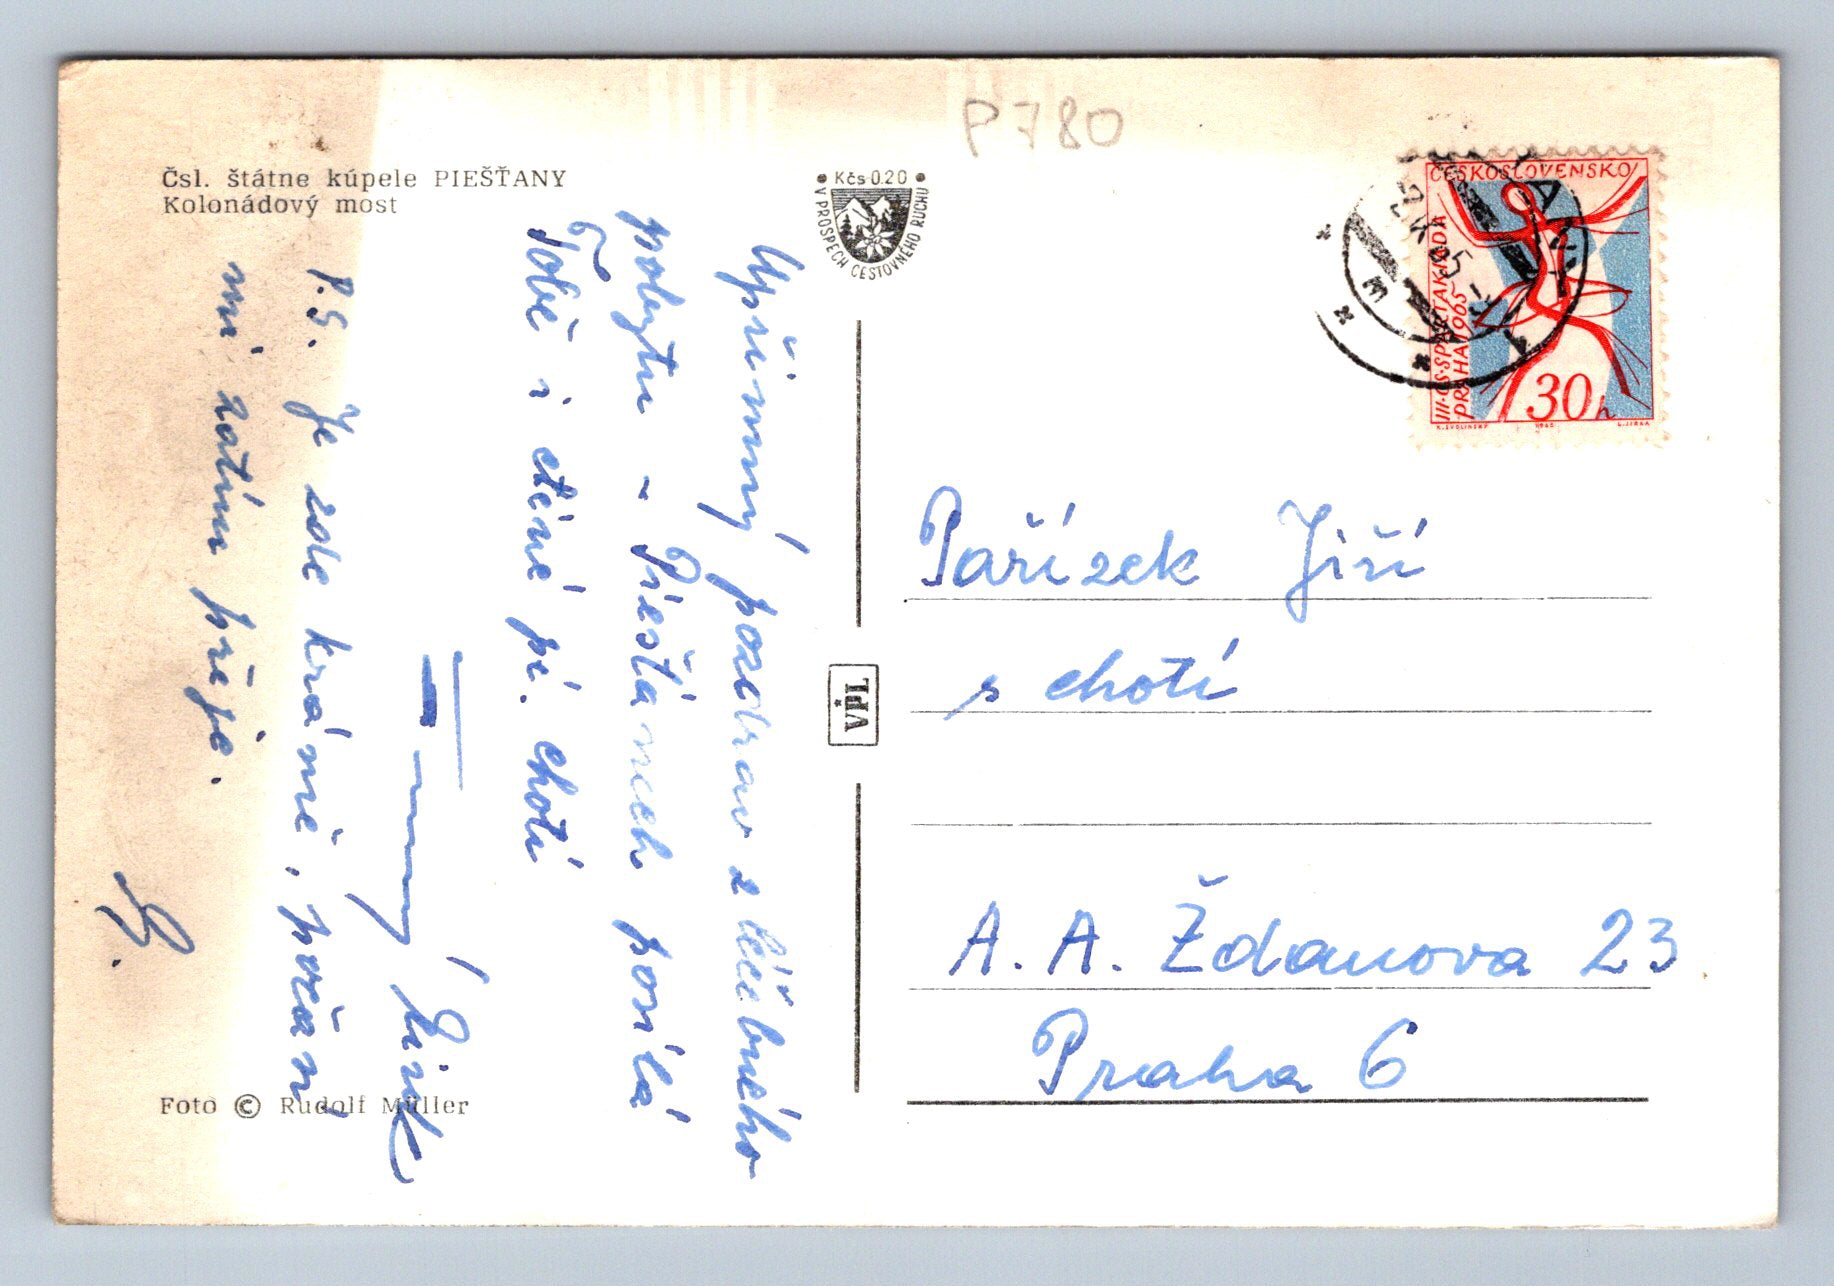 P780
Čsl. štátne kúpele PIEŠŤANY
Kolonádový most
• Kčs 0.20 •
V PROSPECH CESTOVNÉHO RUCHU
ČESKOSLOVENSKO
III. CS. SPARTAKIADA
PRAHA 1965
30 h
K. SVOLINSKÝ 1965 L. JIRKA
Upřímný pozdrav z léčebného
pobytu - Piešťanech posílá
Tobě i ctěné pí. choti
P.S. Je zde krásně, počasí
mi zatím přeje.
VPL
Pařízek Jiří
s chotí
A. A. Ždanova 23
Praha 6
Foto © Rudolf Müller